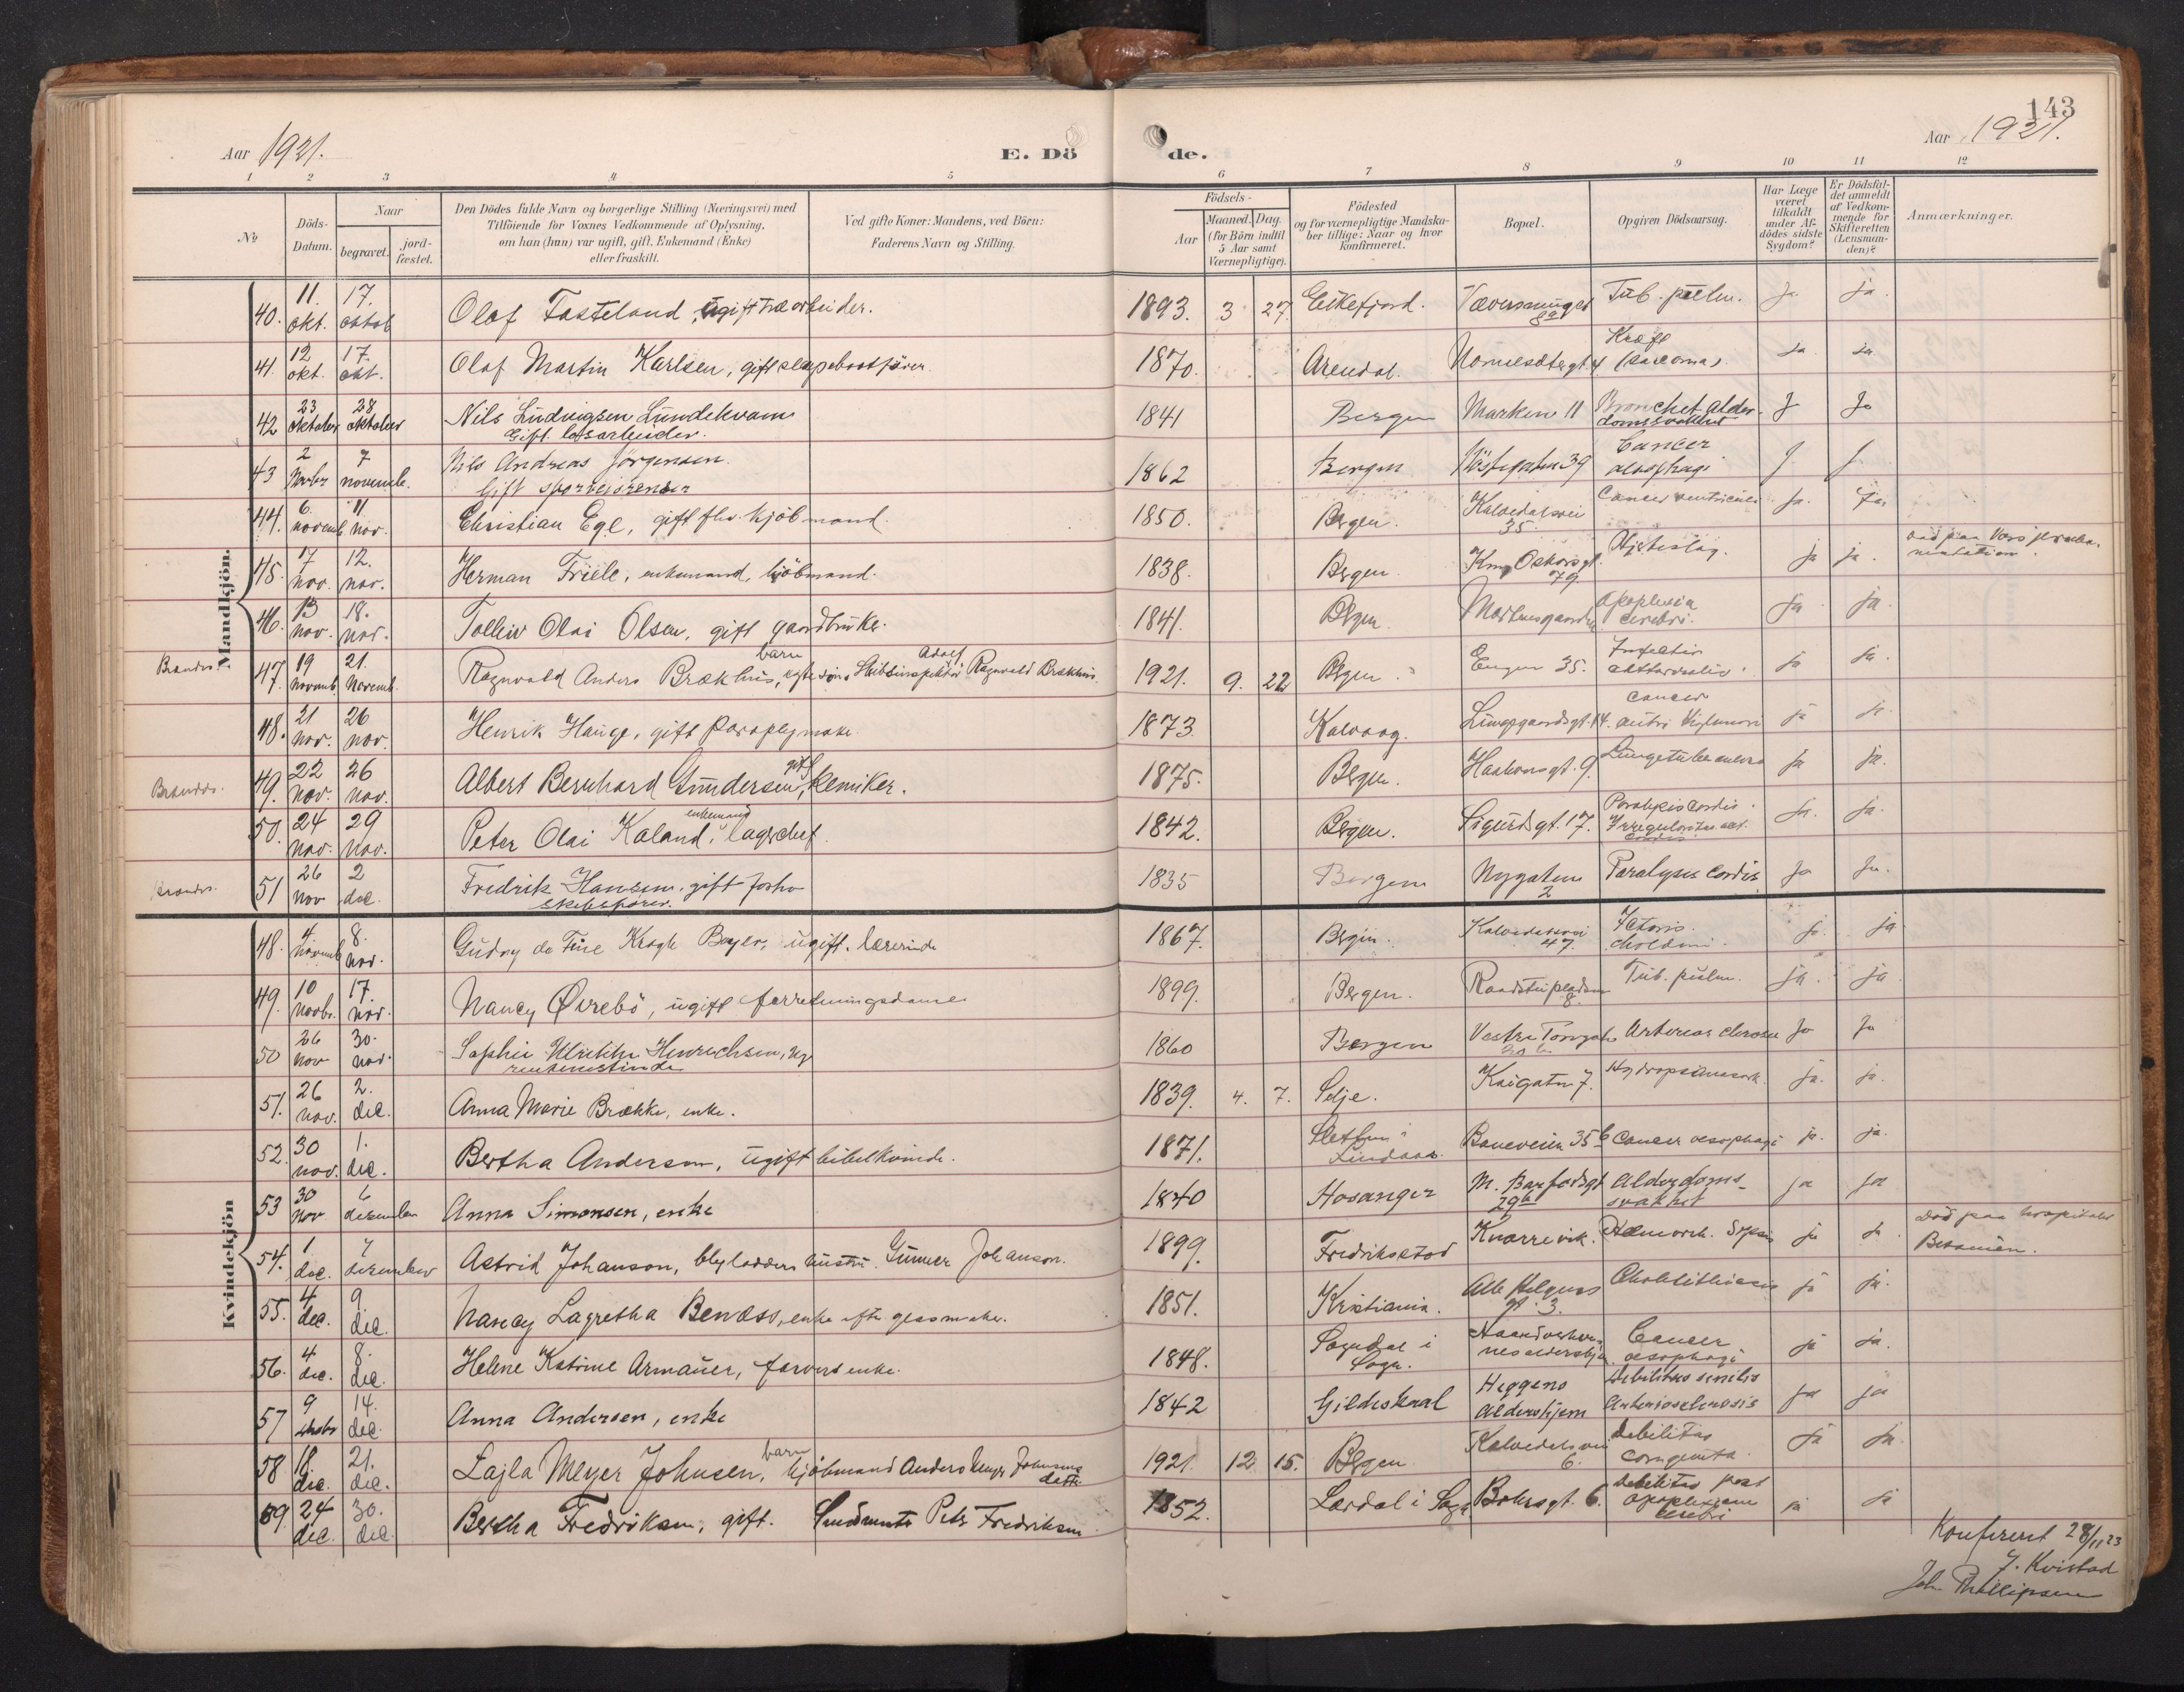 143
Aar 1921.
E. Dö
de.
Aar 1921.
1 2 3 4 5 6 7 8 9 10 11 12
No
Döds-Datum.
Naar
begravet.
jord-fæstet.
Den Dödes fulde Navn og borgerlige Stilling (Næringsvei) med
Tilföiende for Voxnes Vedkommende af Oplysning,
om han (hun) var ugift, gift, Enkemand (Enke)
eller fraskilt.
Ved gifte Koner: Mandens, ved Börn:
Faderens Navn og Stilling.
Födsels-
Aar
Maaned. Dag.
(for Börn indtil
5 Aar samt
Værnepligtige).
Födested
og for værnepligtige Mandska-
ber tillige: Naar og hvor
Konfirmeret.
Bopæl.
Opgiven Dödsaarsag.
Har Læge
været
tilkaldt
under Af-
dödes sidste
Sygdom?
Er Dödsfal-
det anmeldt
af Vedkom-
mende for
Skifteretten
(Lensman-
den)?
Anmærkninger.
Mandkjön.
40. 11. okt. 17. oktob Olaf Fasteland, ugift træarbeider. 1893. 3 27 Eikefjord. 8a Tub. pulm. ja ja.
41. 12 okt. 17. okt. Olaf Martin Karlsen, gift slæpebaatfører. 1870. Arendal. 4 Kræft (sarcoma). ja ja.
42 23 oktober 28 oktober Nils Ludvigsen Lundekvam
Gift. losarbeider. 1841 Bergen Marken 11 Bronchet. alder-
domssvakhet J Ja
43 2 Novbr 7 novemb. Nils Andreas Jørgensen.
Gift 1862 Bergen Nöstegaten 39 Cancer
oesophagi J J
44. 6. novemb 11 nov. Christian Ege, gift fhv. kjöbmand. 1850. Bergen. Kalvedalsvei
35. Cancer ventriculi ja. ja.
45. 7 nov. 12. nov. Herman Friele, enkemand, kjöbmand. 1838. Bergen Kong Oskarsgt.
79. Hjerteslag. ja ja.
död paa Voss
46. 13 nov. 18. nov. Tollev Olai Olsen, gift gaardbruker. 1841. Bergen Apoplexia
cerebri. ja ja.
Brændes.
47. 19 novemb. 21. Novemb. Ragnvald Anders Brækhus, barn, Adolf Ragnvald Brækhus 1921. 9. 22 Bergen Engen 35. ja ja.
48. 21 nov. 26 nov. Henrik Hauge, gift paraplymaker. 1873. Kalvaag. Lungegaardsgt. 14. cancer
antri Highmori ja ja.
Brændes.
49. 22 nov. 26 nov. Albert Bernhard Gundersen, gift kemiker. 1875. Bergen. Haakonsgt. 9. ja ja.
50. 24 nov. 29 nov. Peter Olai Kaland, enkemand lagerchef 1842. Bergen. Sigurdsgt. 17. Paralysis cordis.
cordis. ja. ja.
Brændes.
51 26 nov 2 dec. Fredrik Hansen. gift forhv
skibsförer. 1835 Bergen Nygaten
2 Paralysis Cordis Ja Ja.
Kvindekjön
48. 4 novemb 8. nov. Gudny de Fine Krogh Beyer, ugift. lærerinde 1867. Bergen. Kalvedalsvei
47. ja. ja
49. 10 novbr. 17. nov. Nancy Øvrebö, ugift forretningsdame 1899. Bergen. Raadstupladsen
8. Tub. pulm. ja. ja
50 26 nov 30. nov. Sophie Ulrikke Henrichsen, ug
rentenistinde 1860 Bergen Vestre Torvgate
20 b. Arteriosclerose Ja Ja
51. 26 nov. 2. dec. Anna Marie Brække, enke. 1839. 4. 7. Selje. Kaigaten 7. ja. ja.
52. 30 nov. 1. dec. Bertha Andersen, ugift bibelkvinde. 1871. Sletten i
Lindaas. Baneveien 35 b Cancer oesophagi ja. ja.
53 30 nov 6 desember Anna Simonsen, enke 1840 Hosanger M. Barfodsgt
29a Alderdoms-
svakhet ja ja
54. 1 dec. 7 desember Astrid Johanson, hustru. Gunner Johanson. 1899. Fredrikstad Knarrevik. Sepsis ja ja
Död paa hospitalet
Betanien.
55. 4 dec. 9. dec. Nancy Lagretha Benæss, enke efter glasmaker. 1851. Kristiania. Alle Helgens
gt. 3. Cholelithiasis ja ja.
56. 4 dec. 8. dec. Helene Katrine Armauer, farvers enke. 1848. Sogndal i
Sogn. Cancer
oesophagi ja ja.
57 9 14. dec. Anna Andersen, enke 1842 Gildeskaal Heggens
Aldershjem Debilitas senilis
Arteriosclerosis ja ja
58 18. dec. 21. dec. Lajla Meyer Johnsen, barn kjöbmand Anders Meyer Johnsens
datter 1921. 12 15. Bergen Kalvedalsvei
6. Debilitas
congenita. ja ja.
59. 24 dec. 30. dec Bertha Fredriksen, gift. Peter Fredriksen 1852. Lærdal i Sogn Bohrsgt. 6. Debilitas post
apoplexiam
cerebri ja ja
Konfereret 28/11 23
J. Kvistad
Joh. Phillipsen